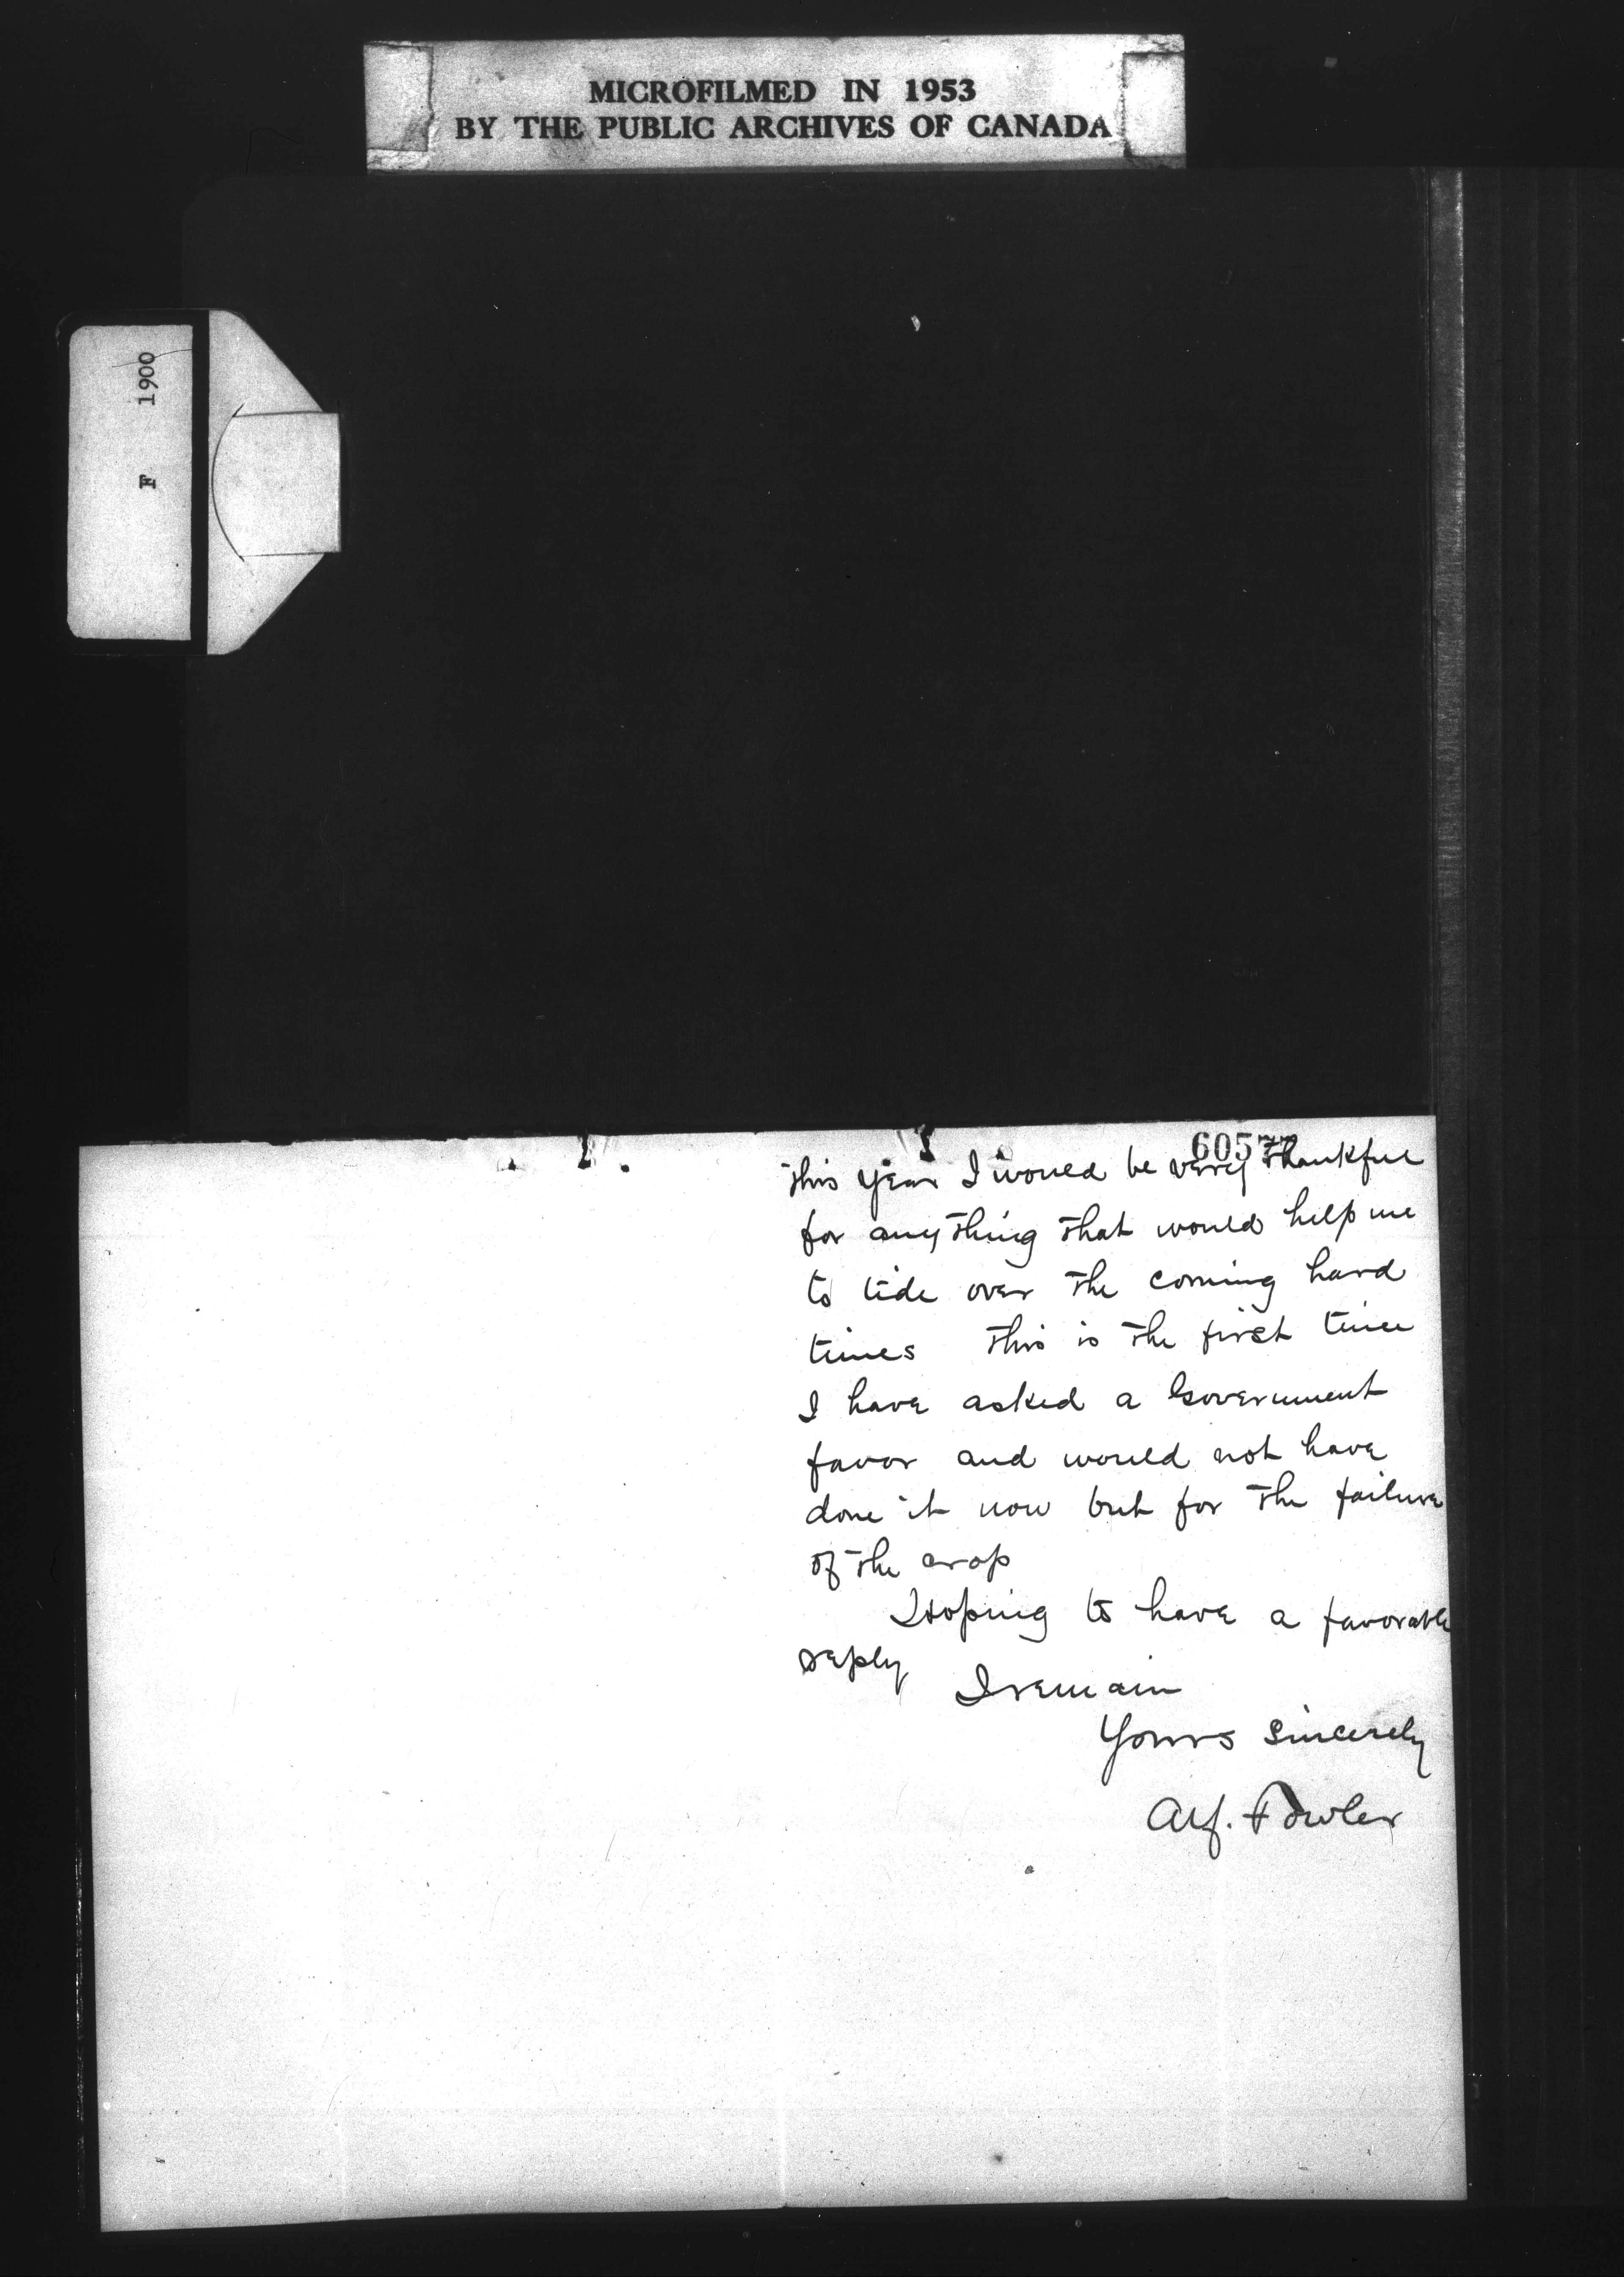 MICROFILMED IN 1953
BY THE PUBLIC ARCHIVES OF CANADA
F 1900
60577
this year I would be very thankful
for anything that would help me
to tide over the coming hard
times this is the first time
I have asked a Government
favor and would not have
done it now but for the failure
of the crop
Hoping to have a favorable
reply
I remain
Yours Sincerely
Alf. Fowler